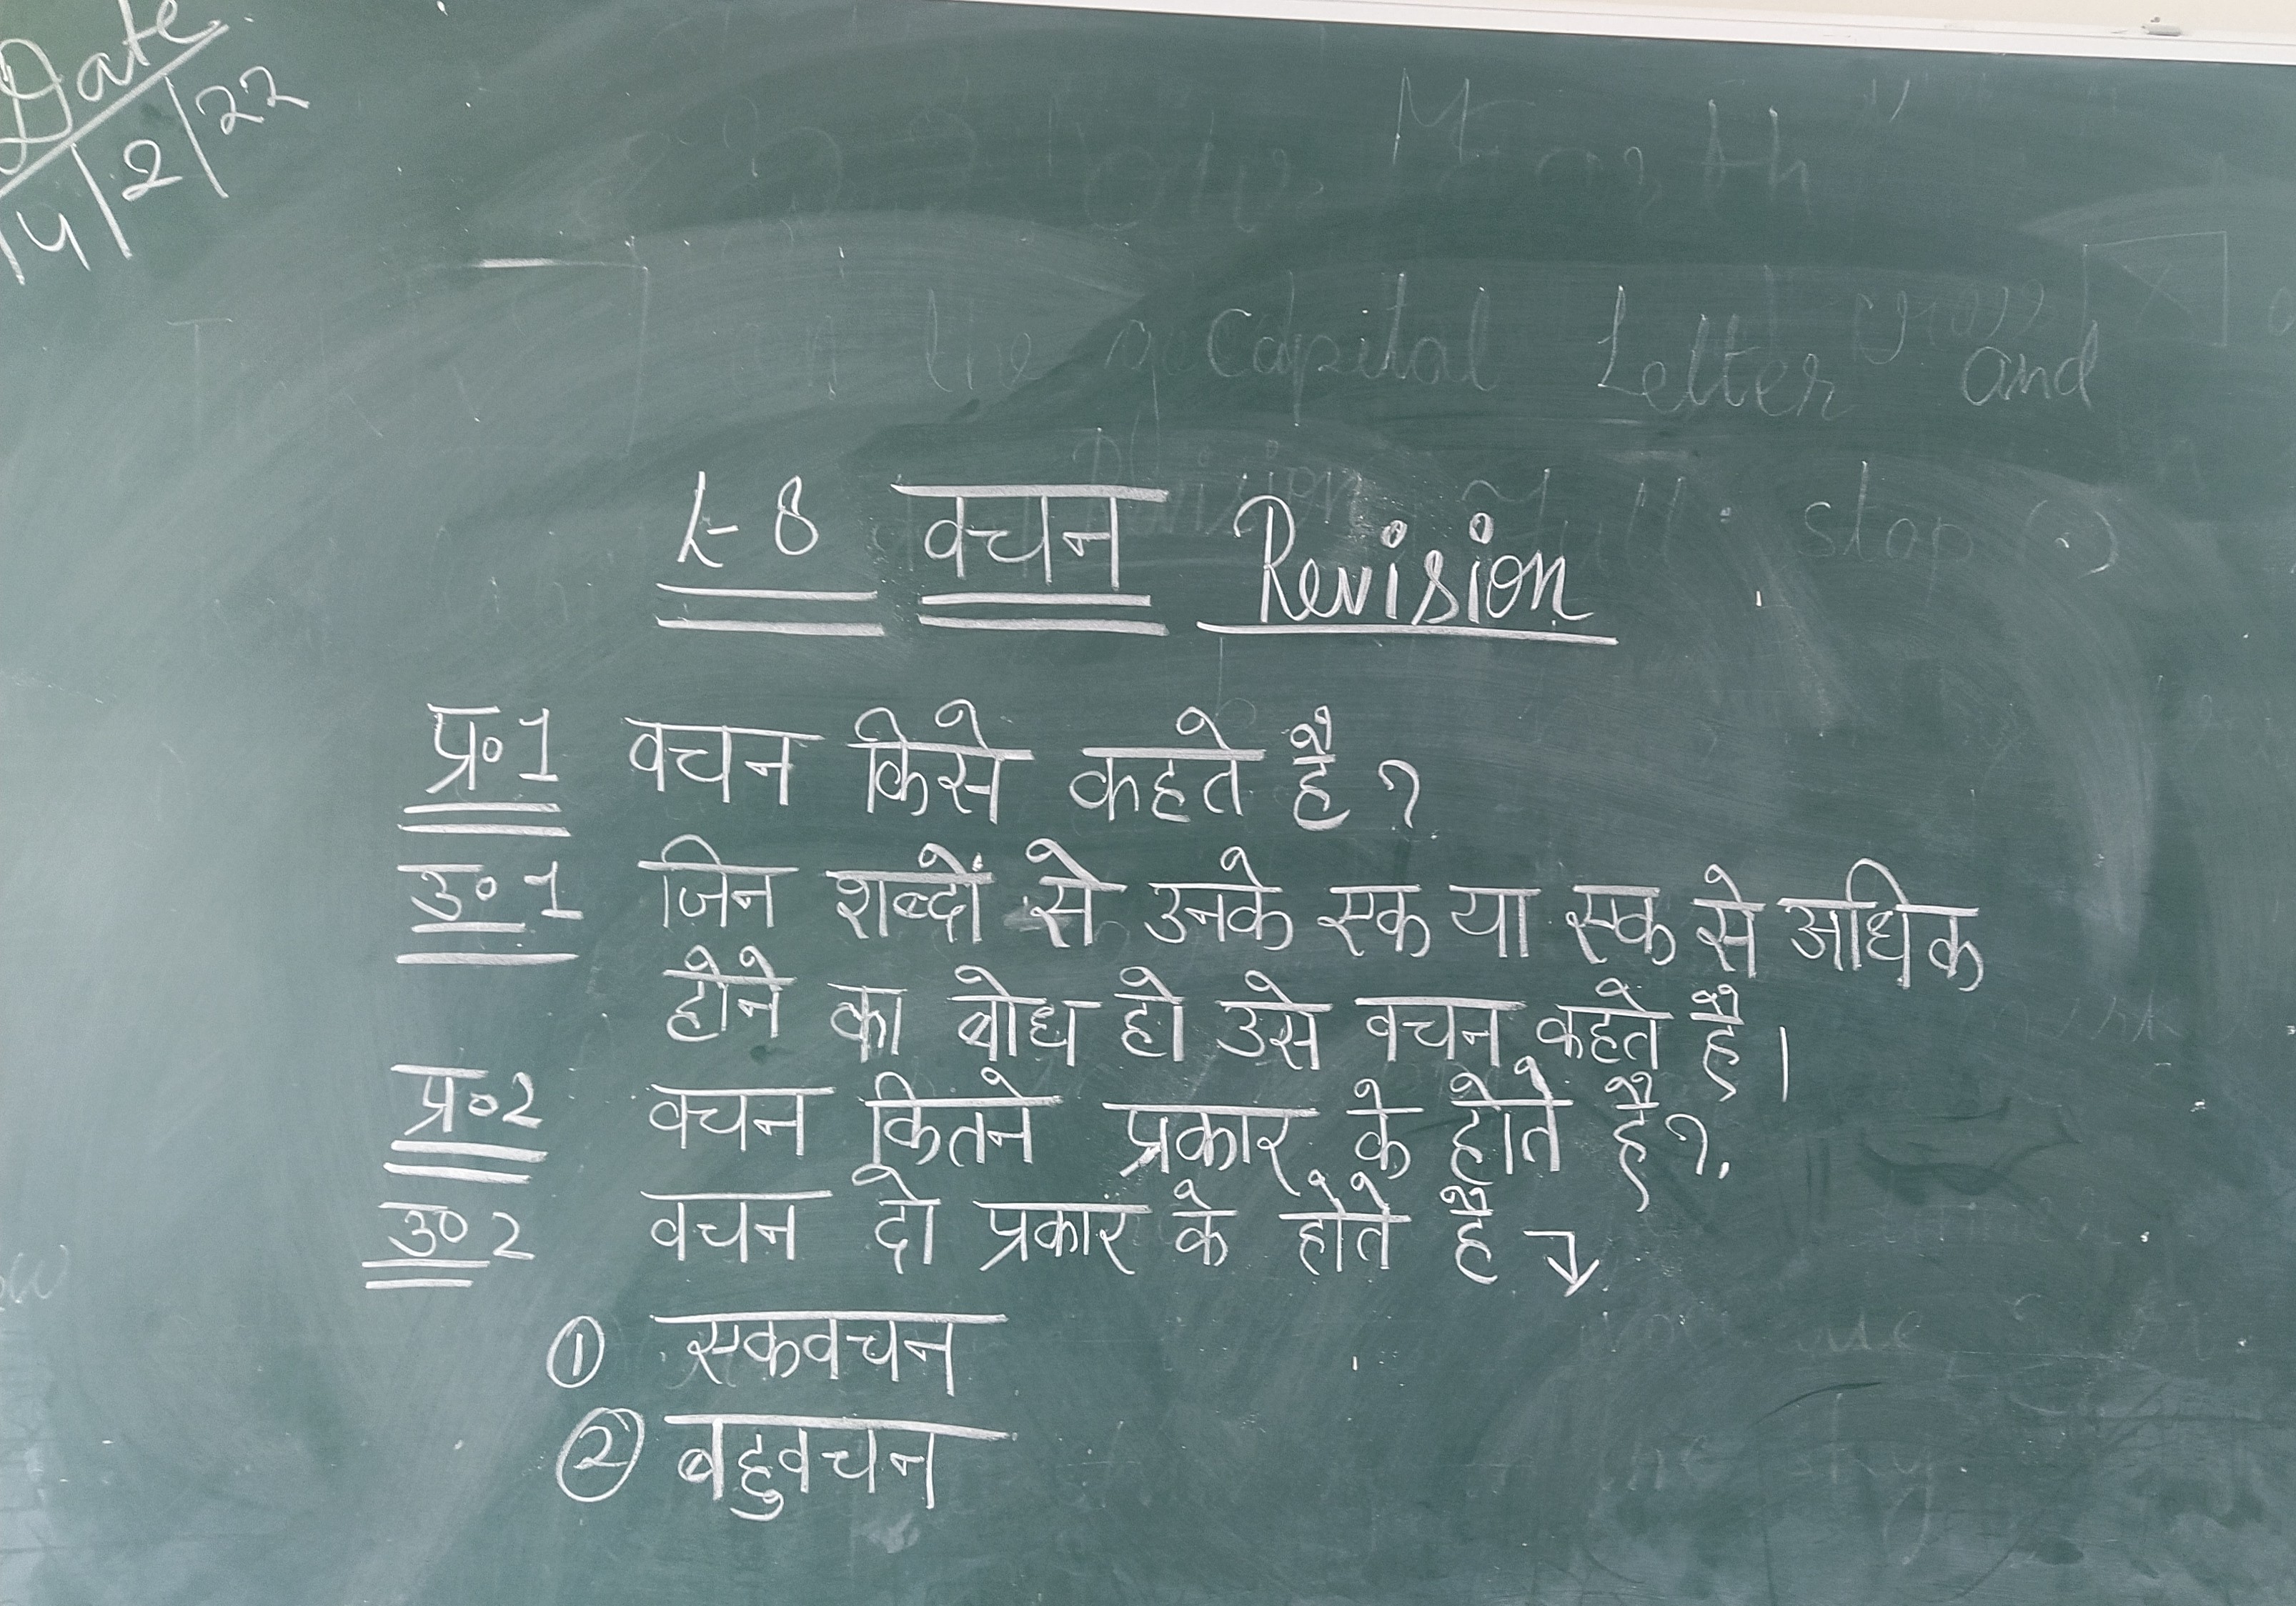 Date
14/2/22
L-8 वचन Revision
प्र॰1 वचन किसे कहते है ?
उ॰1 जिन शब्दों से उनके एक या एक से अधिक
होने का बोध हो उसे वचन कहते है।
प्र॰2 वचन कितने प्रकार के होते है?
उ॰2 वचन दो प्रकार के होते है
① एकवचन
② बहुवचन
Capital Letter and
stop (.)